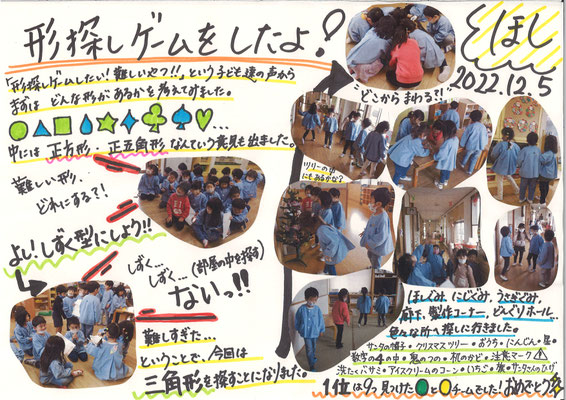 形探しゲームをしたよ!
ほし
2022.12.5
「形探しゲームしたい!難しいやつ!!」という子ども達の声から
まずは どんな形があるかを考えてみました。
中には 正方形・正立角形 なんていう発見も出ました。
難しい形・・
どれにする?!
よし!しずく型にしよう!!
しずく…
しずく…(部屋の中を探す)
ないっ!!
難しすぎた…
ということで、今回は
三角形を探すことになりました。
どこからまわる?!
ツリーの中
にもあるかな?
ほしぐみ、にじぐみ、うさぎぐみ、
廊下、製作コーナー、どんぐりホール…
色々な所へ探しに行きました。
サンタの帽子・クリスマスツリー・おうち・にんじん・星・
数字の4の中・鬼のつの・机のかど・注意マーク
洗たくバサミ・アイスクリームのコーン・いちご・旗・サンタさんのひげ
1位は9つ見つけた●と○チームでした!おめでとう